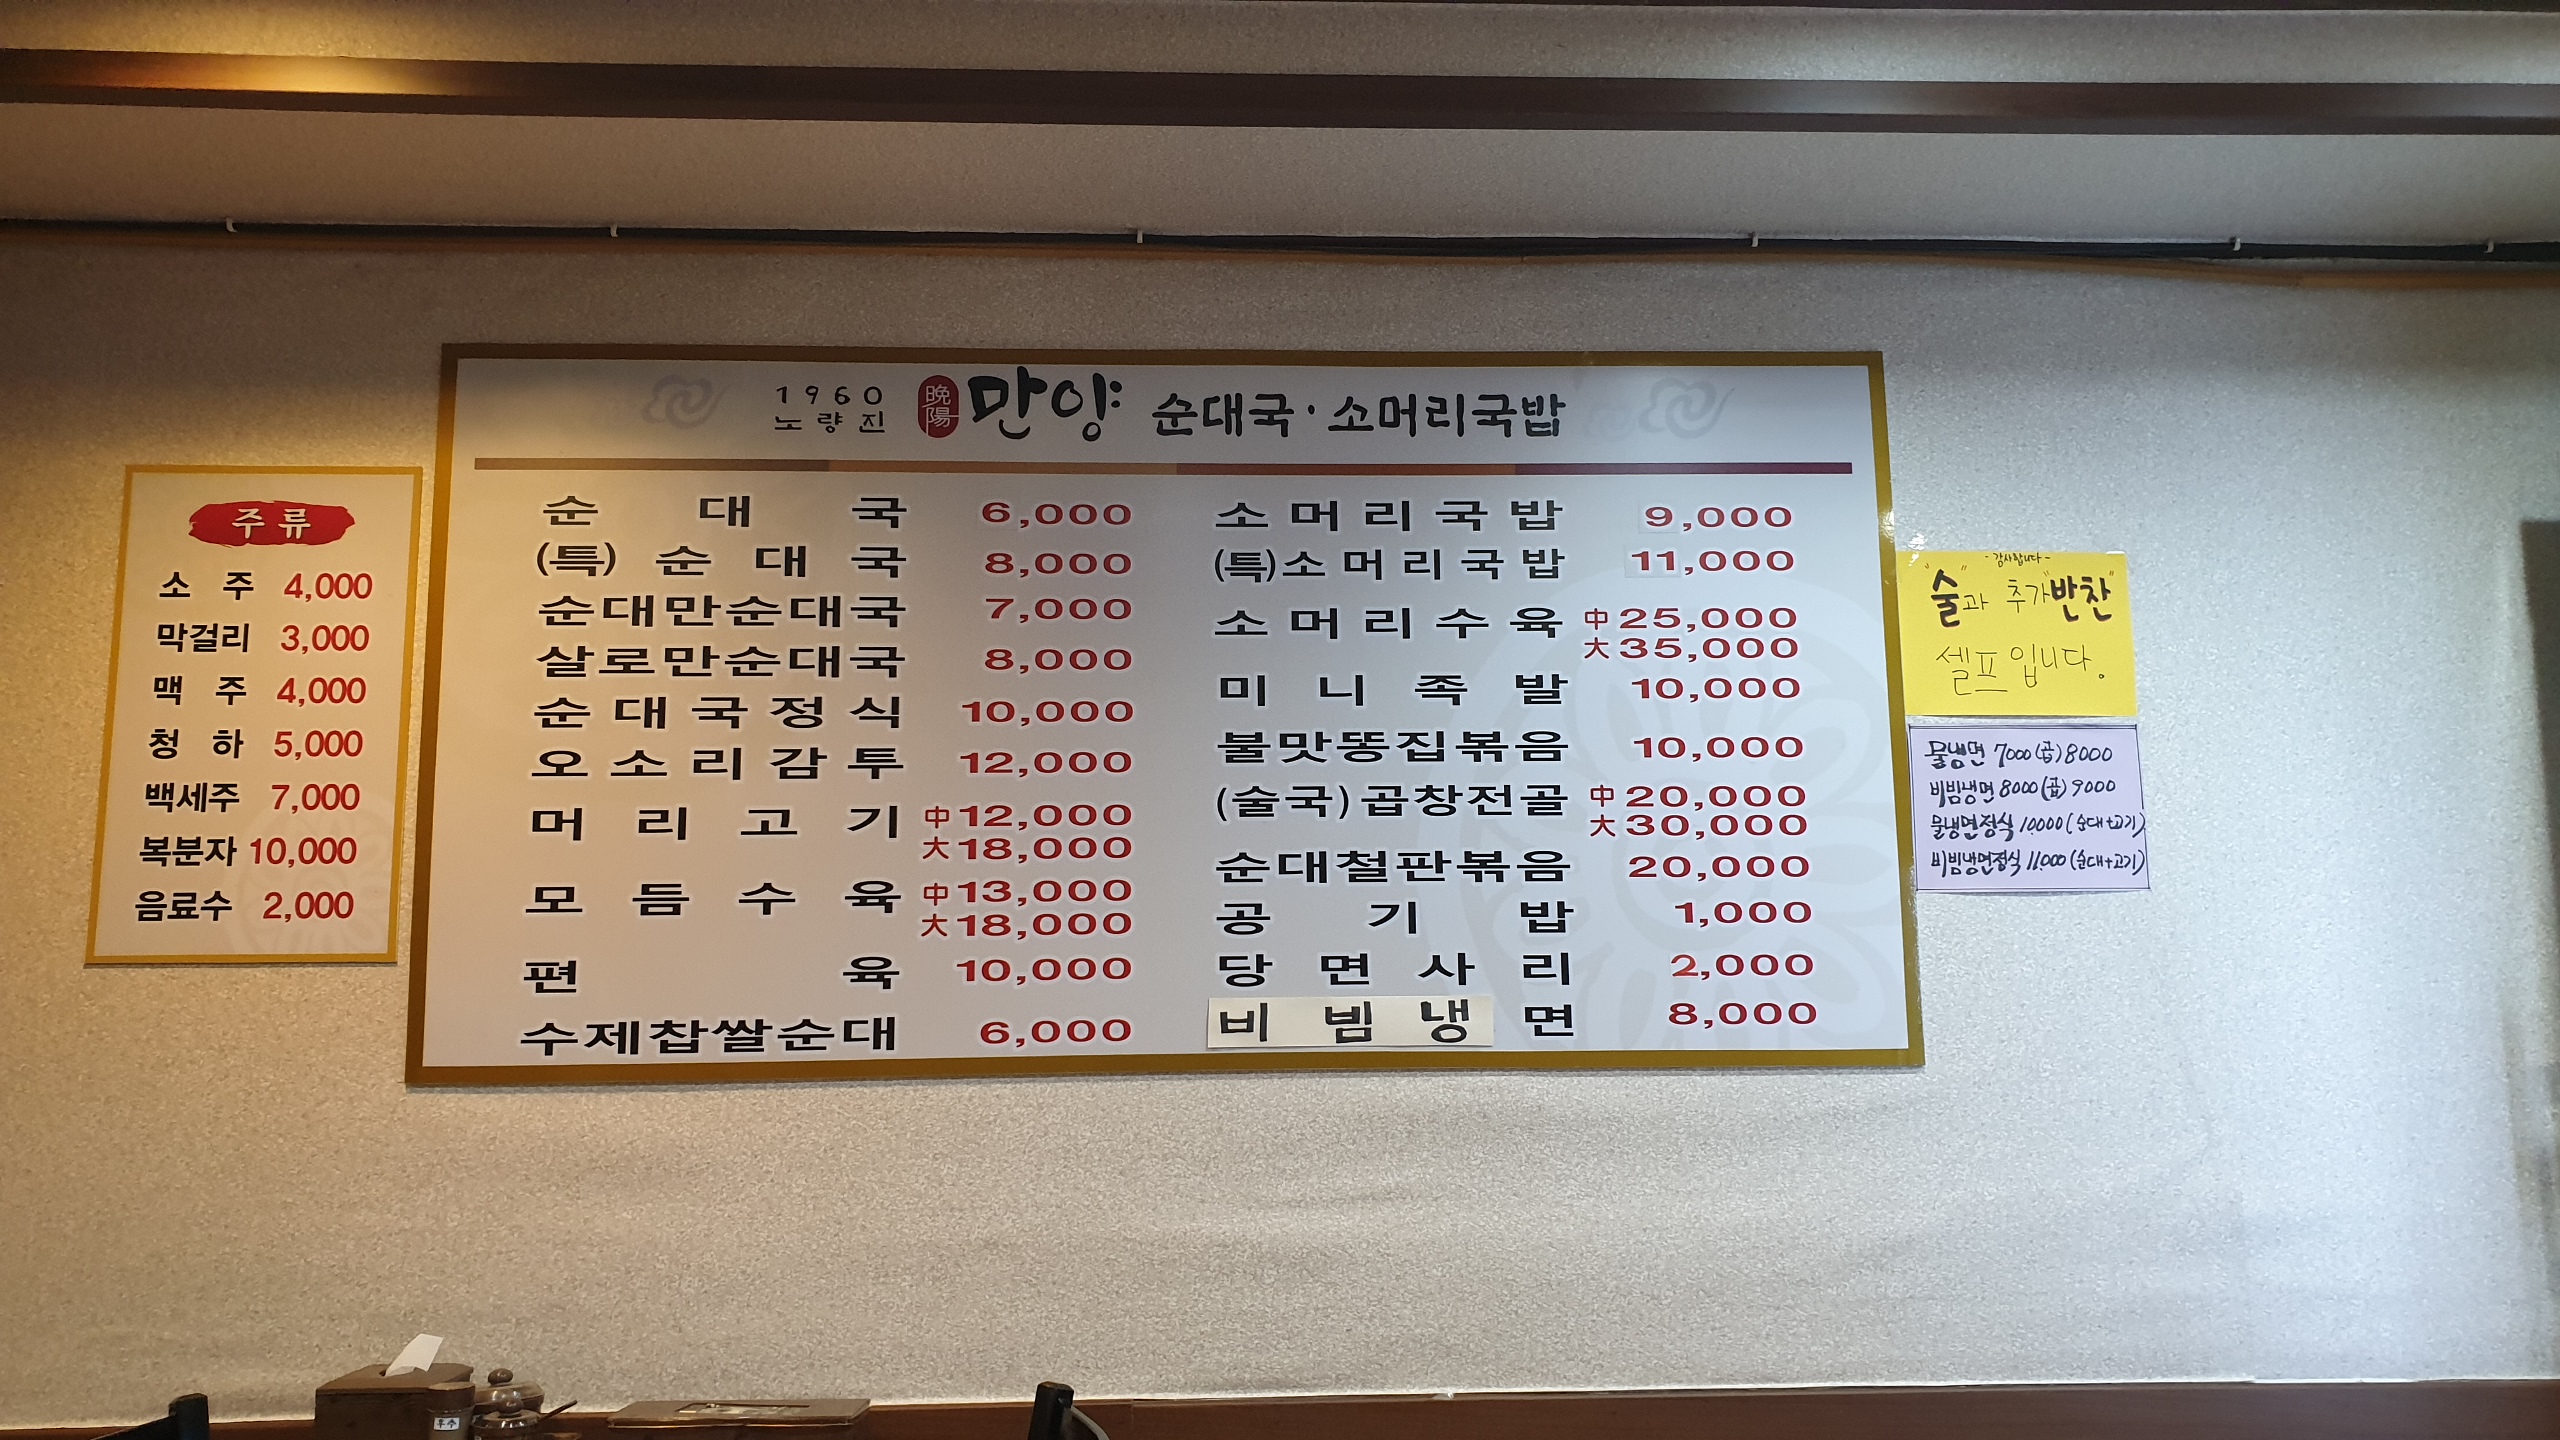 주류
소 주 4,000
막걸리 3,000
맥 주 4,000
청 하 5,000
백세주 7,000
복분자 10,000
음료수 2,000
1960
노량진
晩陽 만양 순대국·소머리국밥
순 대 국 6,000
(특) 순 대 국 8,000
순대만순대국 7,000
살로만순대국 8,000
순 대 국 정 식 10,000
오 소 리 감 투 12,000
머 리 고 기 中 12,000
大 18,000
모 듬 수 육 中 13,000
大 18,000
편 육 10,000
수제찹쌀순대 6,000
소 머 리 국 밥 9,000
(특)소 머 리 국 밥 11,000
소 머 리 수 육 中 25,000
大 35,000
미 니 족 발 10,000
불맛똥집볶음 10,000
(술국)곱창전골 中 20,000
大 30,000
순대철판볶음 20,000
공 기 밥 1,000
당 면 사 리 2,000
비 빔 냉 면 8,000
-감사합니다-
"술"과 추가"반찬"
셀프입니다.
물냉면 7000 (곱) 8000
비빔냉면 8000 (곱) 9000
물냉면정식 10,000 (순대+고기)
비빔냉면정식 11,000 (순대+고기)
후추